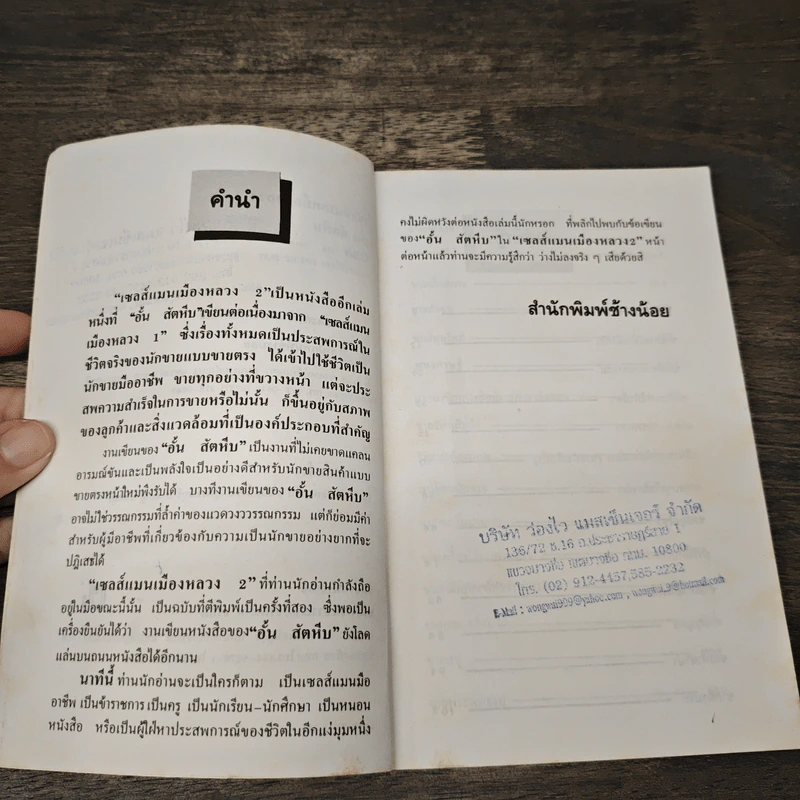 คำนำ
“เซลส์แมนเมืองหลวง 2”เป็นหนังสืออีกเล่ม
หนึ่งที่ “อั้น สัตหีบ”เขียนต่อเนื่องมาจาก “เซลส์แมน
เมืองหลวง 1” ซึ่งเรื่องทั้งหมดเป็นประสพการณ์ใน
ชีวิตจริงของนักขายแบบขายตรง ได้เข้าไปใช้ชีวิตเป็น
นักขายมืออาชีพ ขายทุกอย่างที่ขวางหน้า แต่จะประ
สพความสำเร็จในการขายหรือไม่นั้น ก็ขึ้นอยู่กับสภาพ
ของลูกค้าและสิ่งแวดล้อมที่เป็นองค์ประกอบที่สำคัญ
งานเขียนของ “อั้น สัตหีบ” เป็นงานที่ไม่เคยขาดแคลน
อารมณ์ขันและเป็นพลังใจเป็นอย่างดีสำหรับนักขายสินค้าแบบ
ขายตรงหน้าใหม่พึงรับได้ บางทีงานเขียนของ “อั้น สัตหีบ”
อาจไม่ใช่วรรณกรรมที่ล้ำค่าของแวดวงวรรณกรรม แต่ก็ย่อมมีค่า
สำหรับผู้มีอาชีพที่เกี่ยวข้องกับความเป็นนักขายอย่างยากที่จะ
ปฎิเสธได้
“เซลส์แมนเมืองหลวง 2” ที่ท่านนักอ่านกำลังถือ
อยู่ในมือขณะนี้นั้น เป็นฉบับที่ตีพิมพ์เป็นครั้งที่สอง ซึ่งพอเป็น
เครื่องยืนยันได้ว่า งานเขียนหนังสือของ“อั้น สัตหีบ” ยังโลด
แล่นบนถนนหนังสือได้อีกนาน
นาทีนี้ ท่านนักอ่านจะเป็นใครก็ตาม เป็นเซลส์แมนมือ
อาชีพ เป็นข้าราชการ เป็นครู เป็นนักเรียน–นักศึกษา เป็นหนอน
หนังสือ หรือเป็นผู้ใฝ่หาประสพการณ์ของชีวิตในอีกแง่มุมหนึ่ง
คงไม่ผิดหวังต่อหนังสือเล่มนี้นักหรอก ที่พลิกไปพบกับข้อเขียน
ของ“อั้น สัตหีบ”ใน “เซลส์แมนเมืองหลวง2” หน้า
ต่อหน้าแล้วท่านจะมีความรู้สึกว่า วางไม่ลงจริง ๆ เสียด้วยสิ
สำนักพิมพ์ช้างน้อย
บริษัท ว่องไว แมสเซ็นเจอร์ จำกัด
136/72 ซ.16 ถ.ประชาราษฎร์สาย 1
แขวงบางซื่อ เขตบางซื่อ กทม. 10800
โทร. (02) 912-4457,585-2232
E-Mail : wongwai909@yahoo.com , wongwai_9@hotmail.com